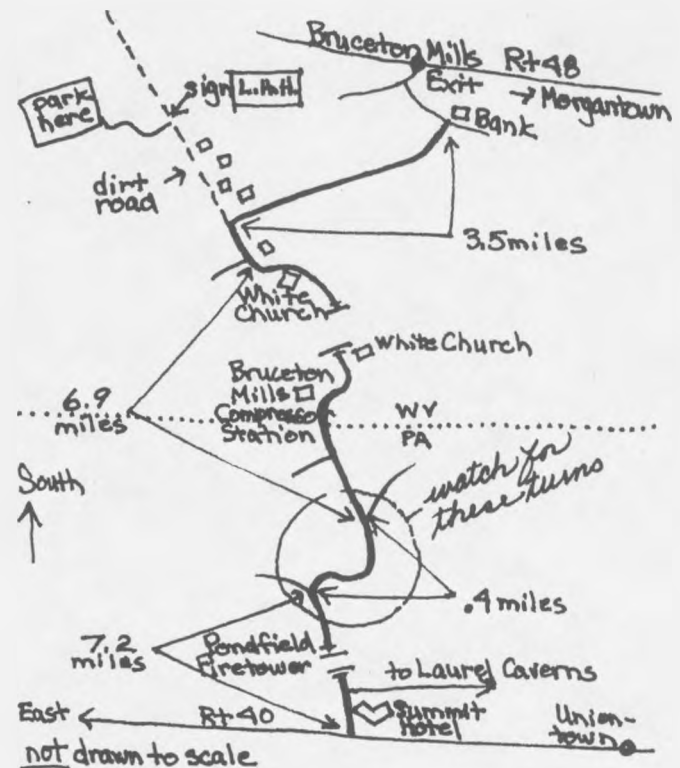 Bruceton Mills Rt 48
Exit
→ Morgantown
Bank
sign L.H.H.
park
here
dirt
road
3.5 miles
White
Church
White Church
Bruceton
Mills
Compressor
Station
6.9
miles
WV
PA
South
watch for
these turns
.4 miles
7.2
miles
Pondfield
Firetower
to Laurel Caverns
Summit
Hotel
East
Rt 40
Union-
town
not drawn to scale